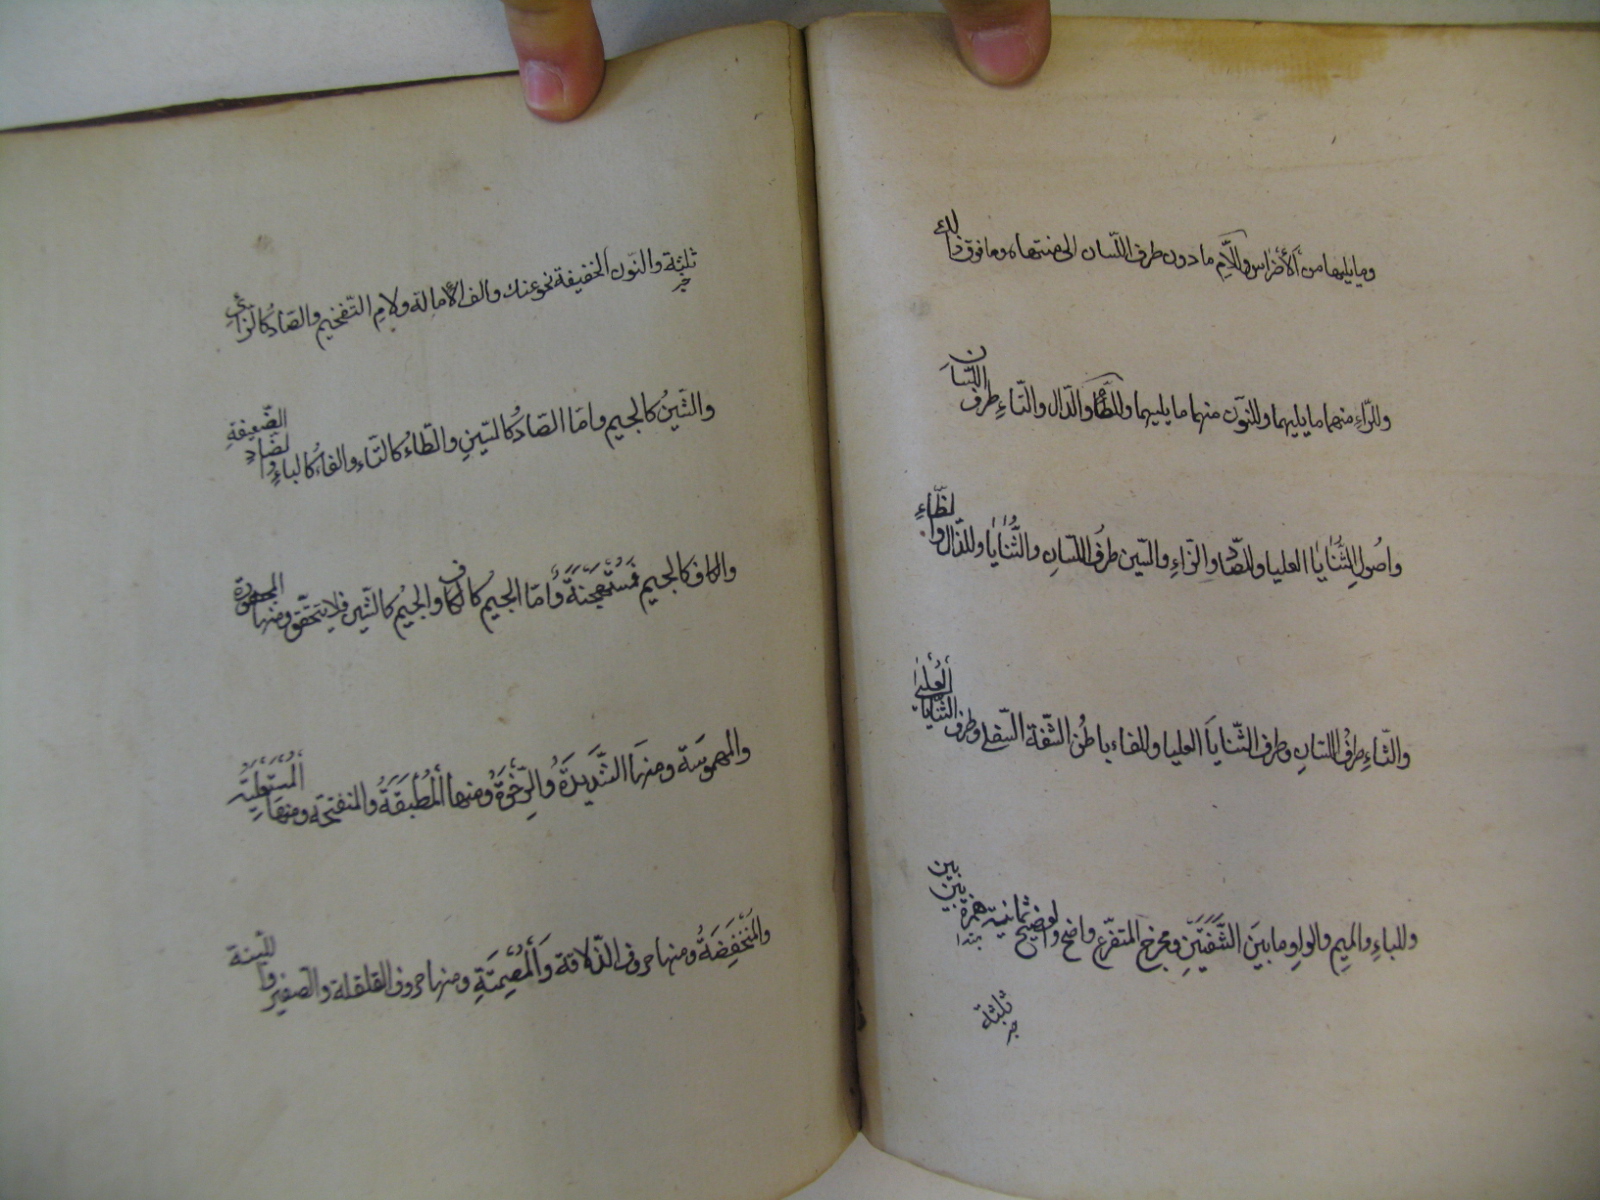 وما يليها من ألأضراس وللاّم ما دون طرف اللّسان الى منتهاه وما فوق ذلك
وللرّاءِ منهما ما يليهما وللنّون منهما ما يليهما وللطّاء والدّال والتّاءِ طرف اللّسان
واصُولِ الثّنُايا العليا وللصّاد والزّاءِ والسّين طرفُ اللسانِ والثّنُايا وللذّال والظّاءِ
والثّاءِ طرفُ اللسانِ وطرف الثّناياَ العليا وللفاء باطنُ الشّفة السّفلى وطرف الثّنايا ألعُليٰ
وللباءِ والميمِ والواوِ ما بينَ الشّفَتَينِ ومخرج المتفرّع واضح والفصيح ثمانية همزة بين بين
مبتدا
ثلثة
خبر
ثلثة والنّون الخفيفة نحو عنك والف الأمالة ولامِ التّفخيم والصّادُ كالزّايِ
خبر
والشّينُ كالجيم وامّا الصّادُ كالسّينِ والطّاءُ كالتّاء والفاءُ كالباءِ والضّادِ الضّعيفةِ
والكاف كالجيم فمُسْتَهْجَنَةٌ وَأمّا الجيم كالكاف والجيُم كالشّين فلا يتحقّق ومنها المجهورة
والمهموسَة ومنهَا الشّديدَةُ والرِّخْوَةُ ومنها ألمُطْبقَةُ والمنفتحَة ومنهَا ألمُسْتَعْلِيَة
والمُنْخَفِضَةُ ومنها حروف الذّلاقة وَألمُصْمِتَةِ ومنها حروف القلقلة والصّفير واللّينة